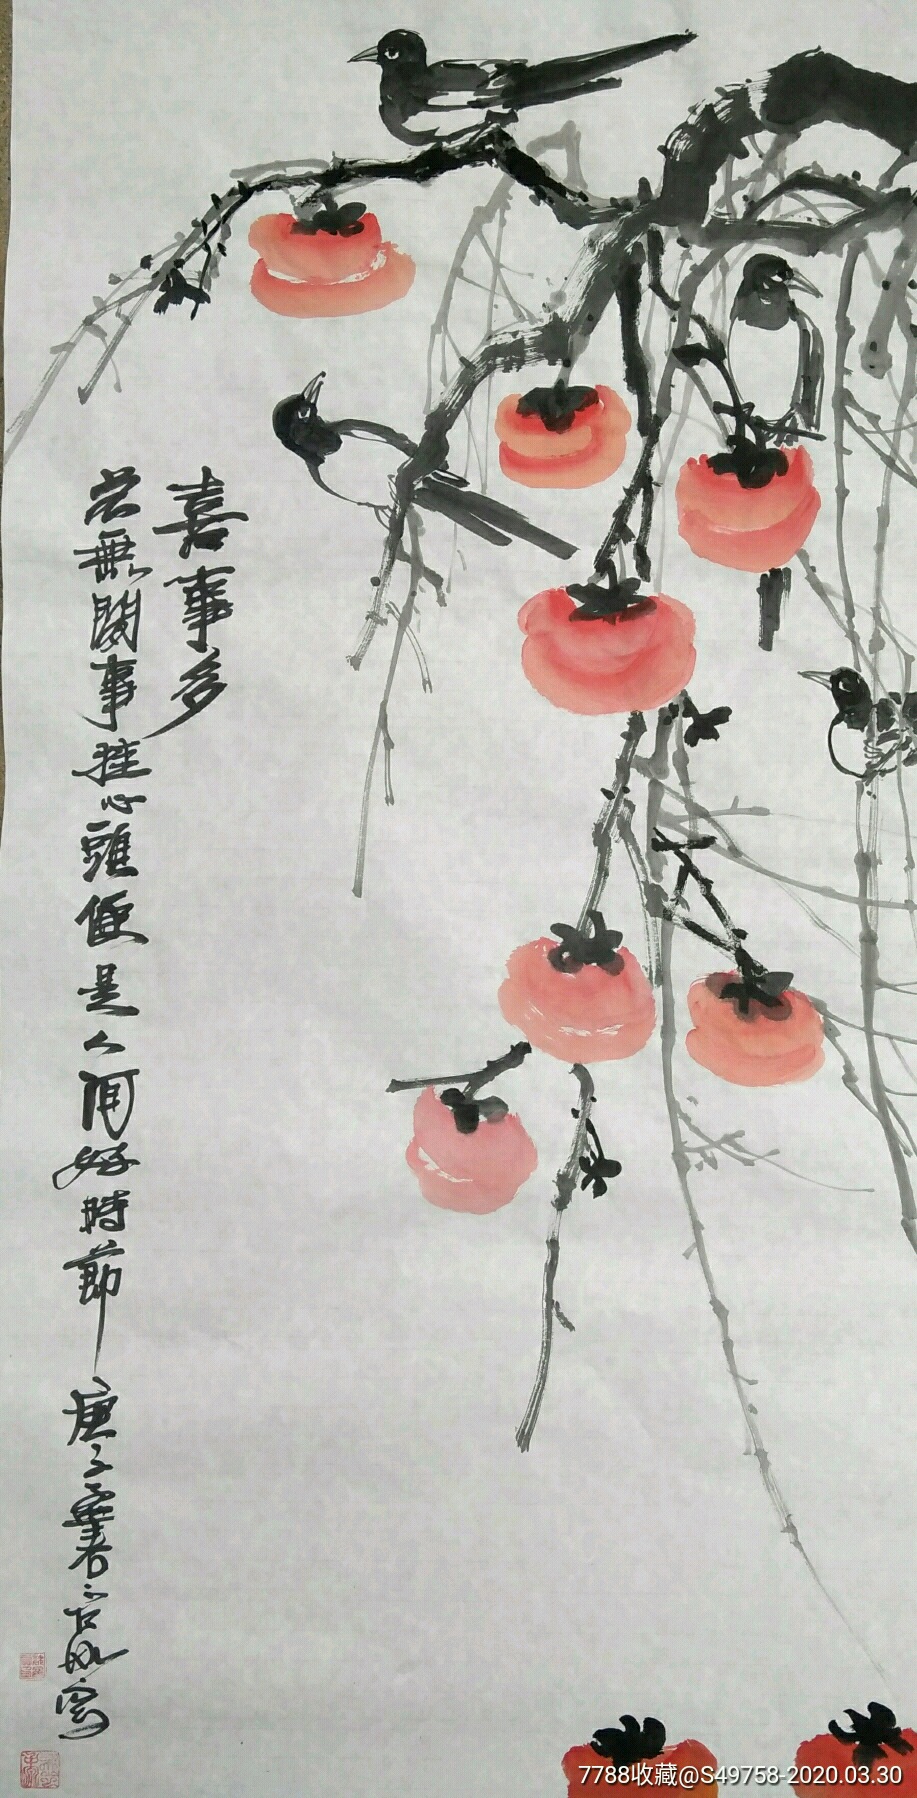 喜事多
若無閑事挂心頭便是人间好時節
庚子春
寫
7788收藏@S49758-2020.03.30